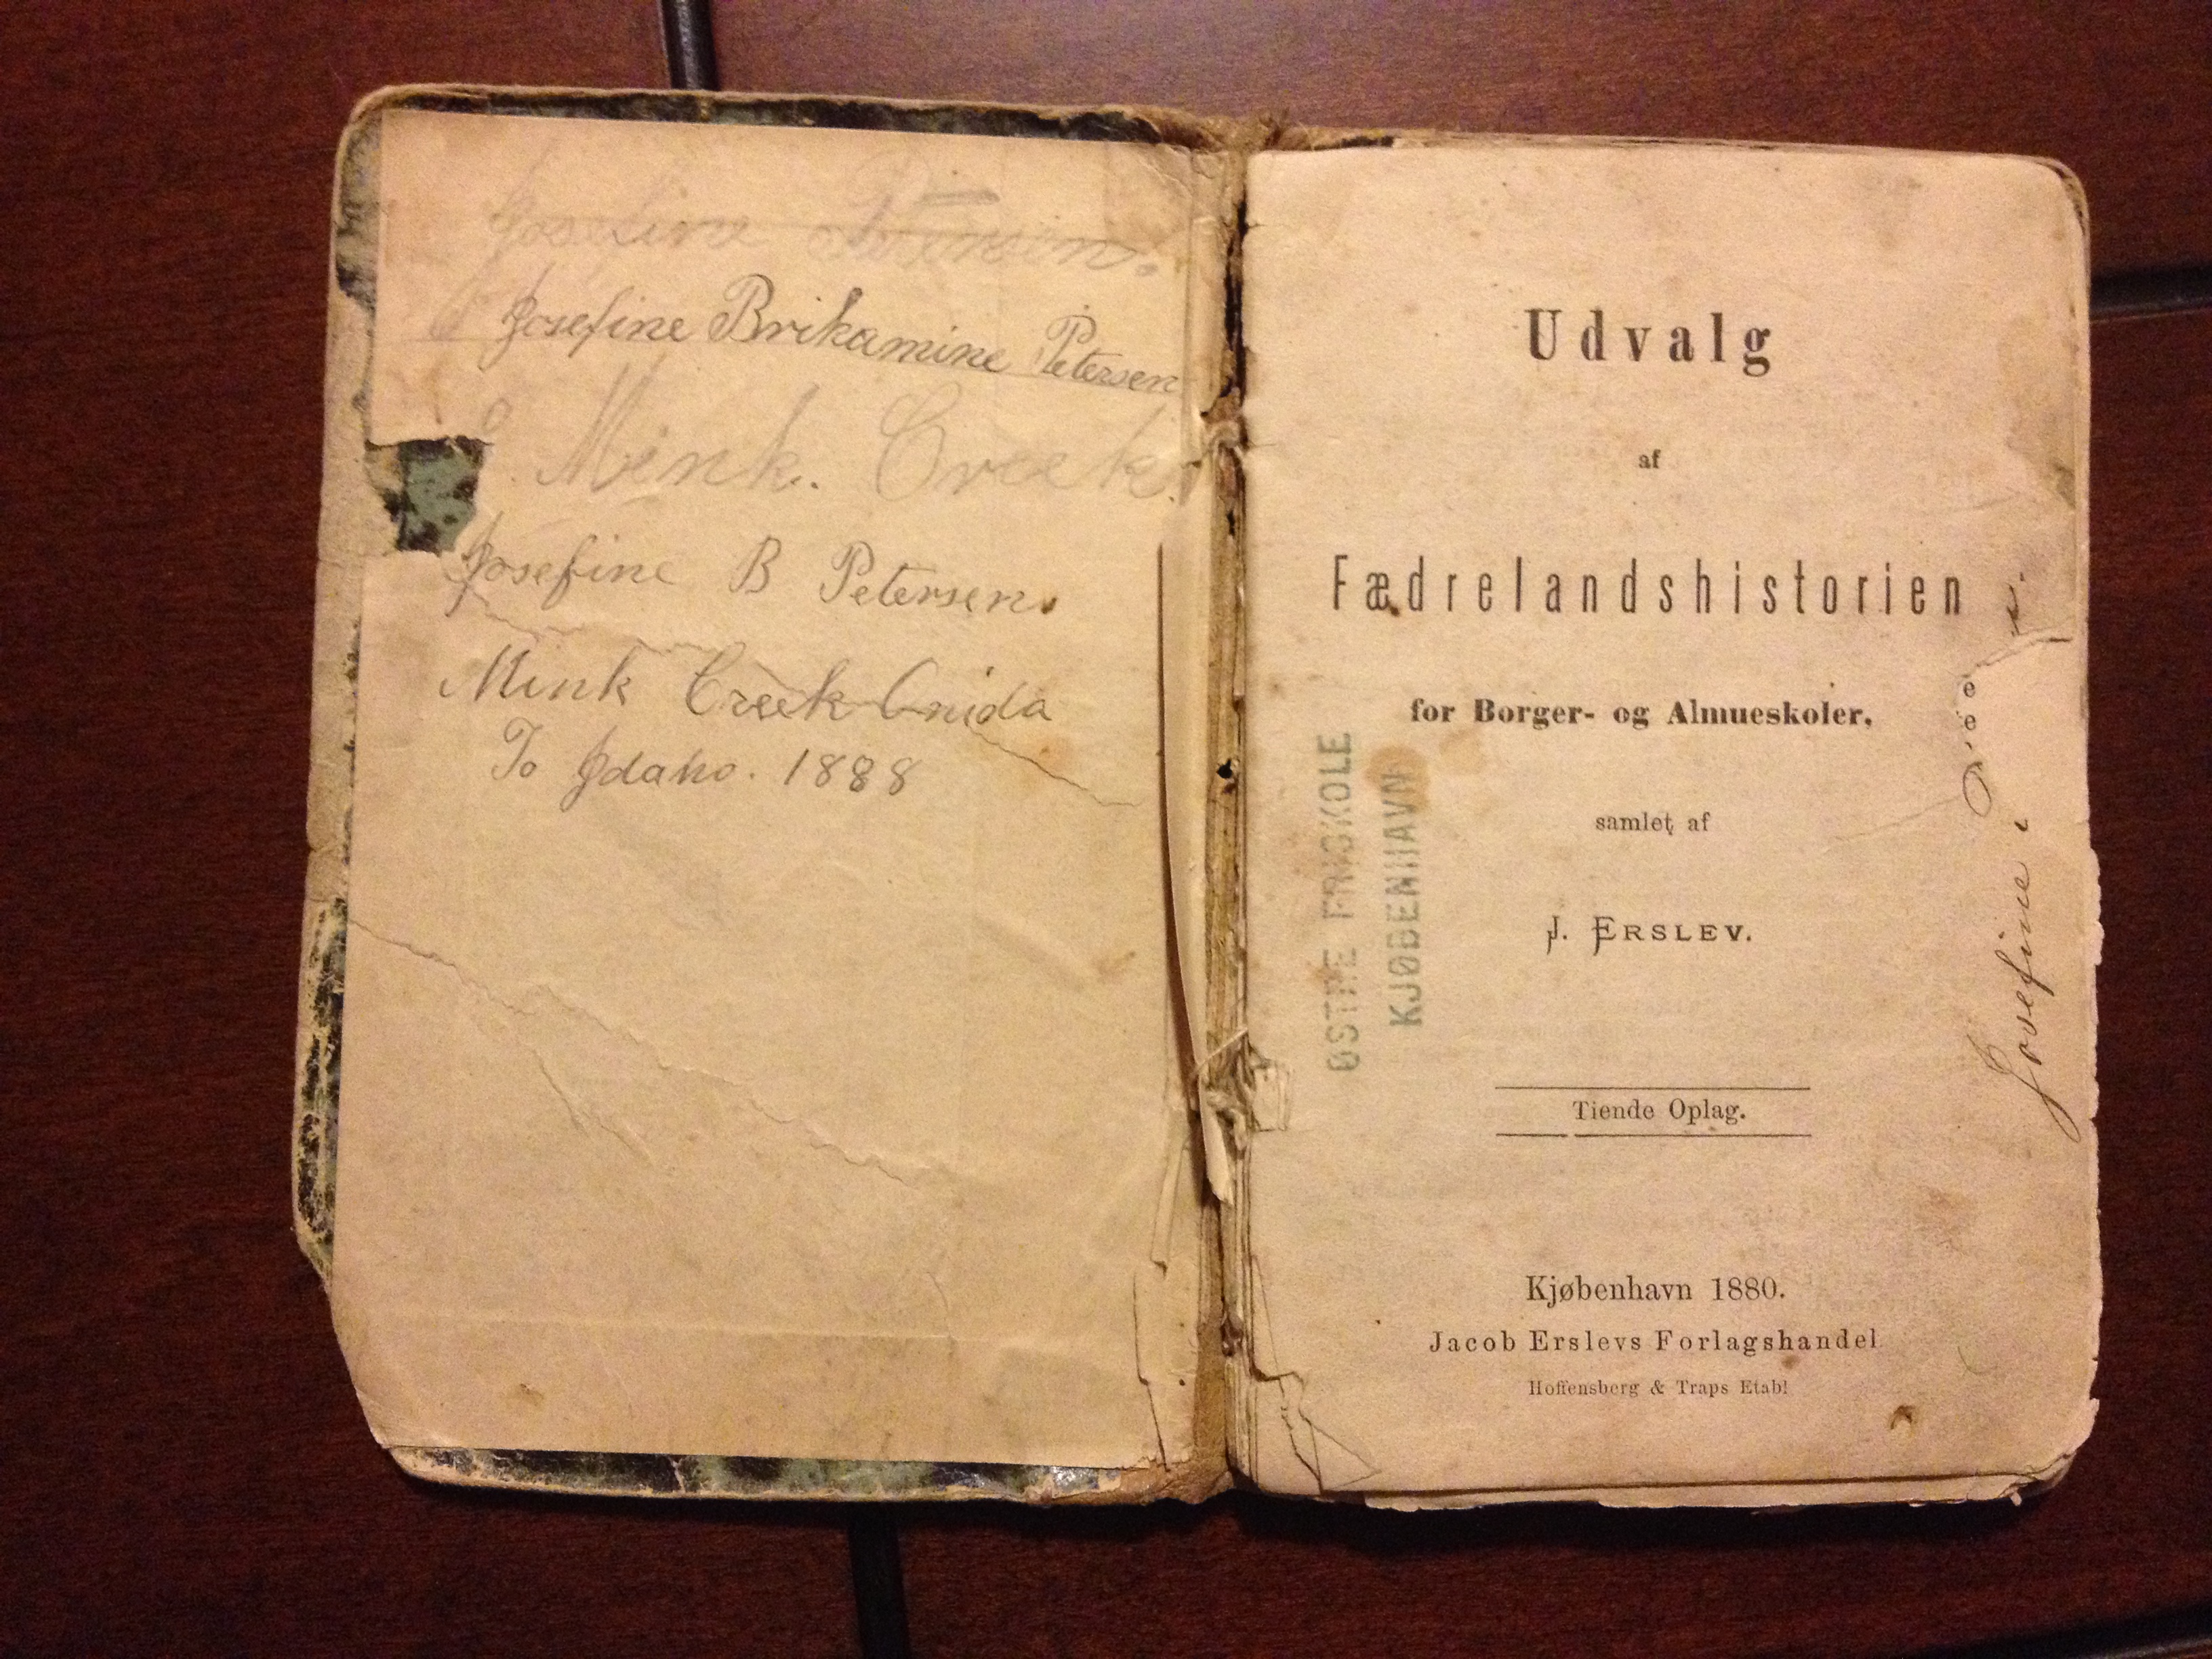 Josefine Petersen.
Josefine Brikamine Petersen
Mink. Creek.
Josefine B Petersen.
Mink Creek Onida
To Idaho. 1888
Udvalg
af
Fædrelandshistorien
for Borger- og Almueskoler.
samlet af
J. ERSLEV.
Tiende Oplag.
Kjøbenhavn 1880.
Jacob Erslevs Forlagshandel
Hoffensberg & Traps Etabl
ØSTRE FRISKOLE
KJØBENHAVN
Josefine